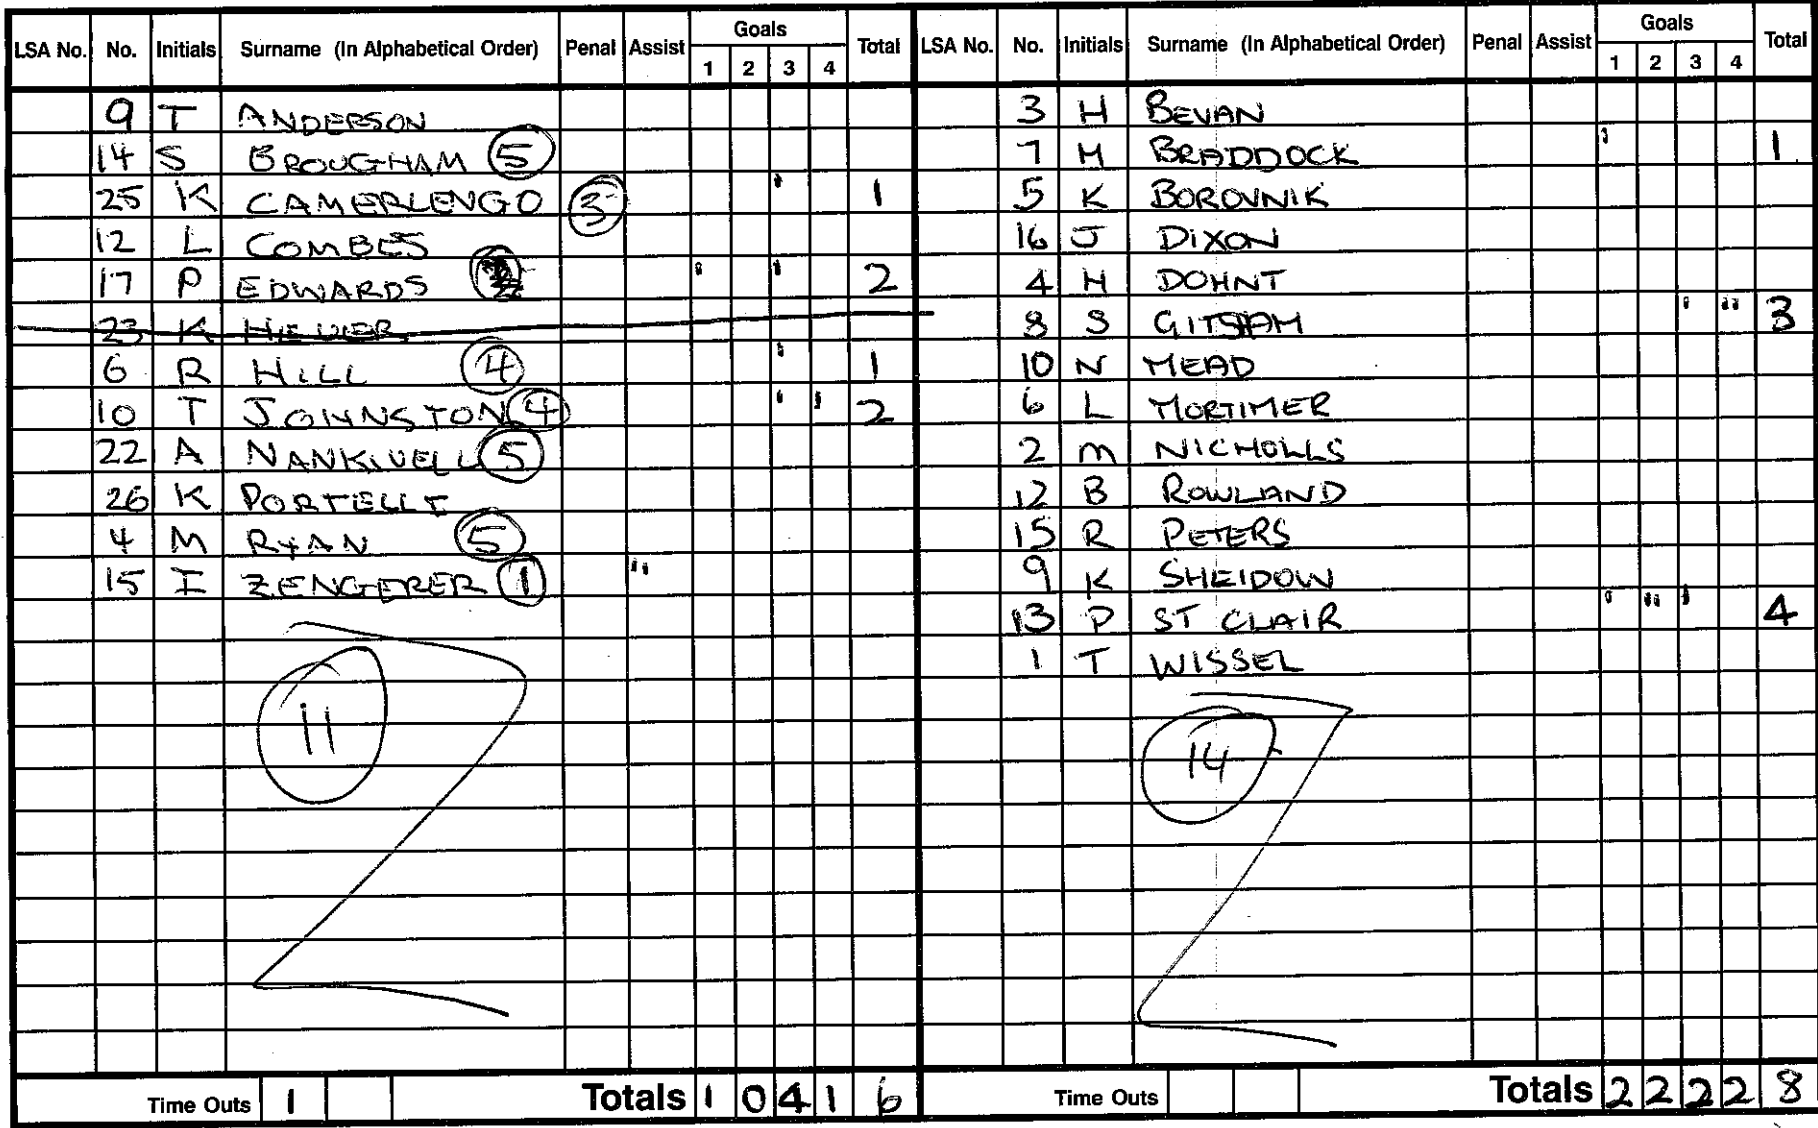 LSA No. No. Initials Surname (In Alphabetical Order) Penal Assist Goals 1 2 3 4 Total
9 T ANDERSON
14 S BROUGHAM 5
25 K CAMERLENGO 3 ' 1
12 L COMBES
17 P EDWARDS ' ' 2
23 K HEUER
6 R HILL 4 ' 1
10 T JOHNSTON 4 ' ' 2
22 A NANKIVELL 5
26 K PORTELLI
4 M RYAN 5
15 I ZENGERER 1 ''
11
Time Outs 1 Totals 1 0 4 1 6
LSA No. No. Initials Surname (In Alphabetical Order) Penal Assist Goals 1 2 3 4 Total
3 H BEVAN
7 M BRADDOCK ' 1
5 K BOROVNIK
16 J DIXON
4 H DOHNT
8 S GITSHAM ' '' 3
10 N MEAD
6 L MORTIMER
2 M NICHOLLS
12 B ROWLAND
15 R PETERS
9 K SHEIDOW
13 P ST CLAIR ' '' ' 4
1 T WISSEL
14
Time Outs Totals 2 2 2 2 8